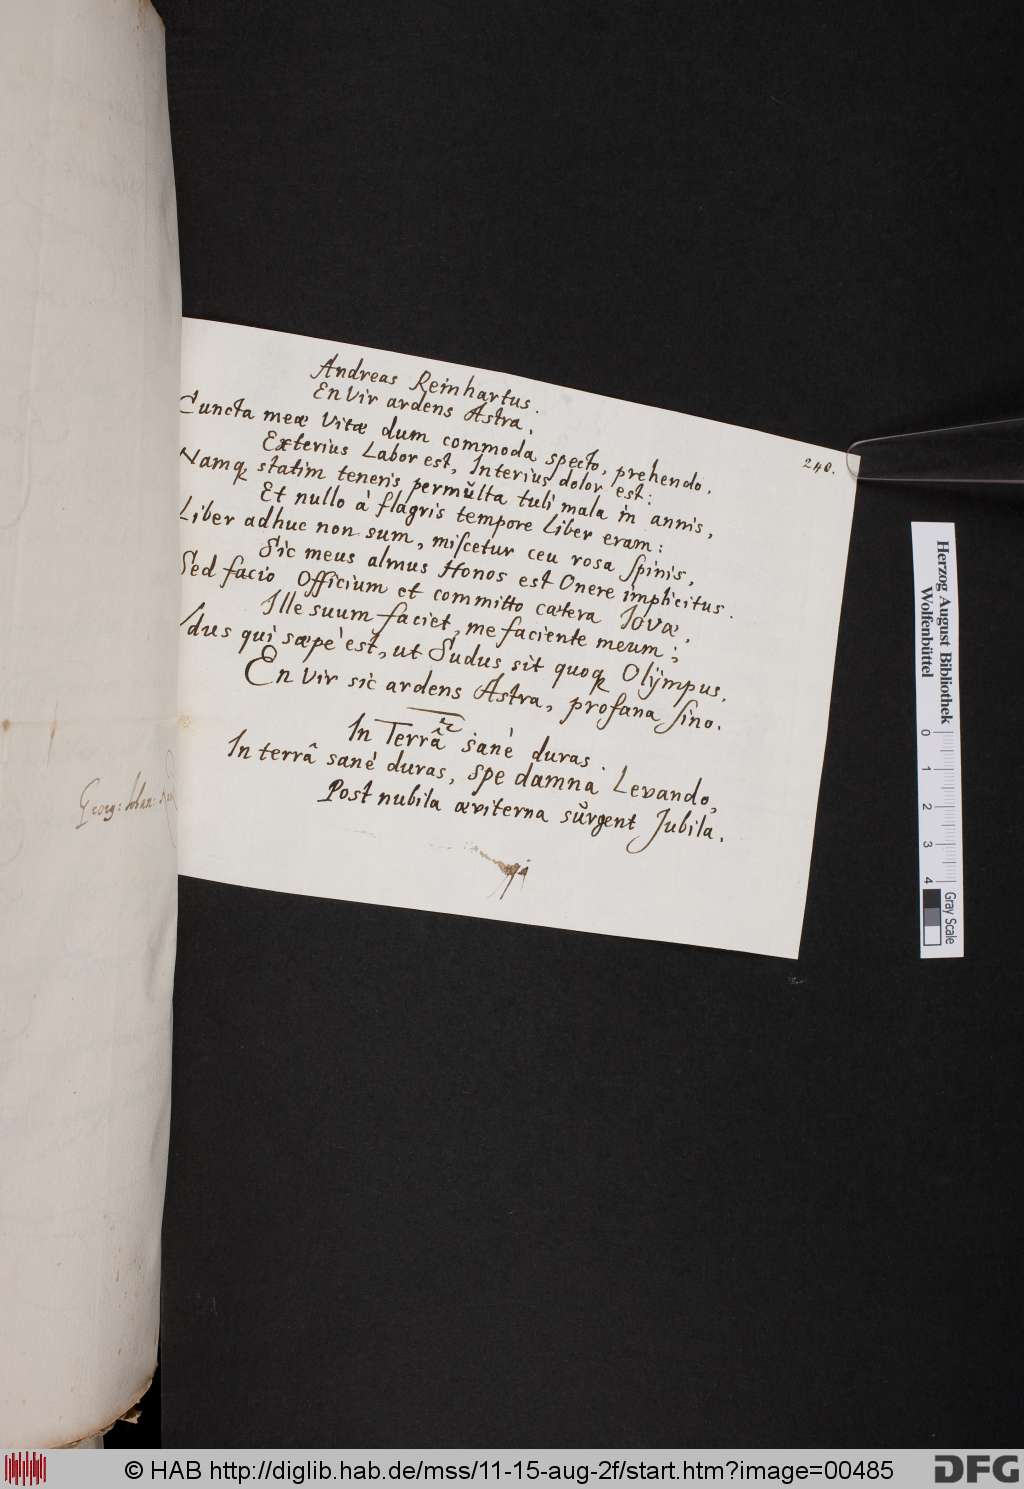 240.
Andreas Reinhartus.
En Vir ardens Astra.
Cuncta meæ Vitæ dum commoda specto, prehendo.
Exterius Labor est, Interius dolor est:
Namq statim teneris permŭlta tuli mala in annis,
Et nullo à flagris tempore liber eram:
Liber adhuc non sum, miscetur ceu rosa spinis,
Sic meus almus Honos est Onere implicitus.
Sed facio Officium et committo cætera Iovæ,
Ille suum faciet, me faciente meum;
Idus qui sæpè est, ut Sudus sit quoq Olÿmpus,
En Vir sic ardens Astra, profana sino.
In Terrâ sanè duras.
In terrâ sanè duras, spe damna Levando,
Post nubila æviterna sŭrgent Jubila.
Georg: Johan:
Herzog August Bibliothek
Wolfenbüttel
0 1 2 3 4
Gray Scale
© HAB http://diglib.hab.de/mss/11-15-aug-2f/start.htm?image=00485
DFG